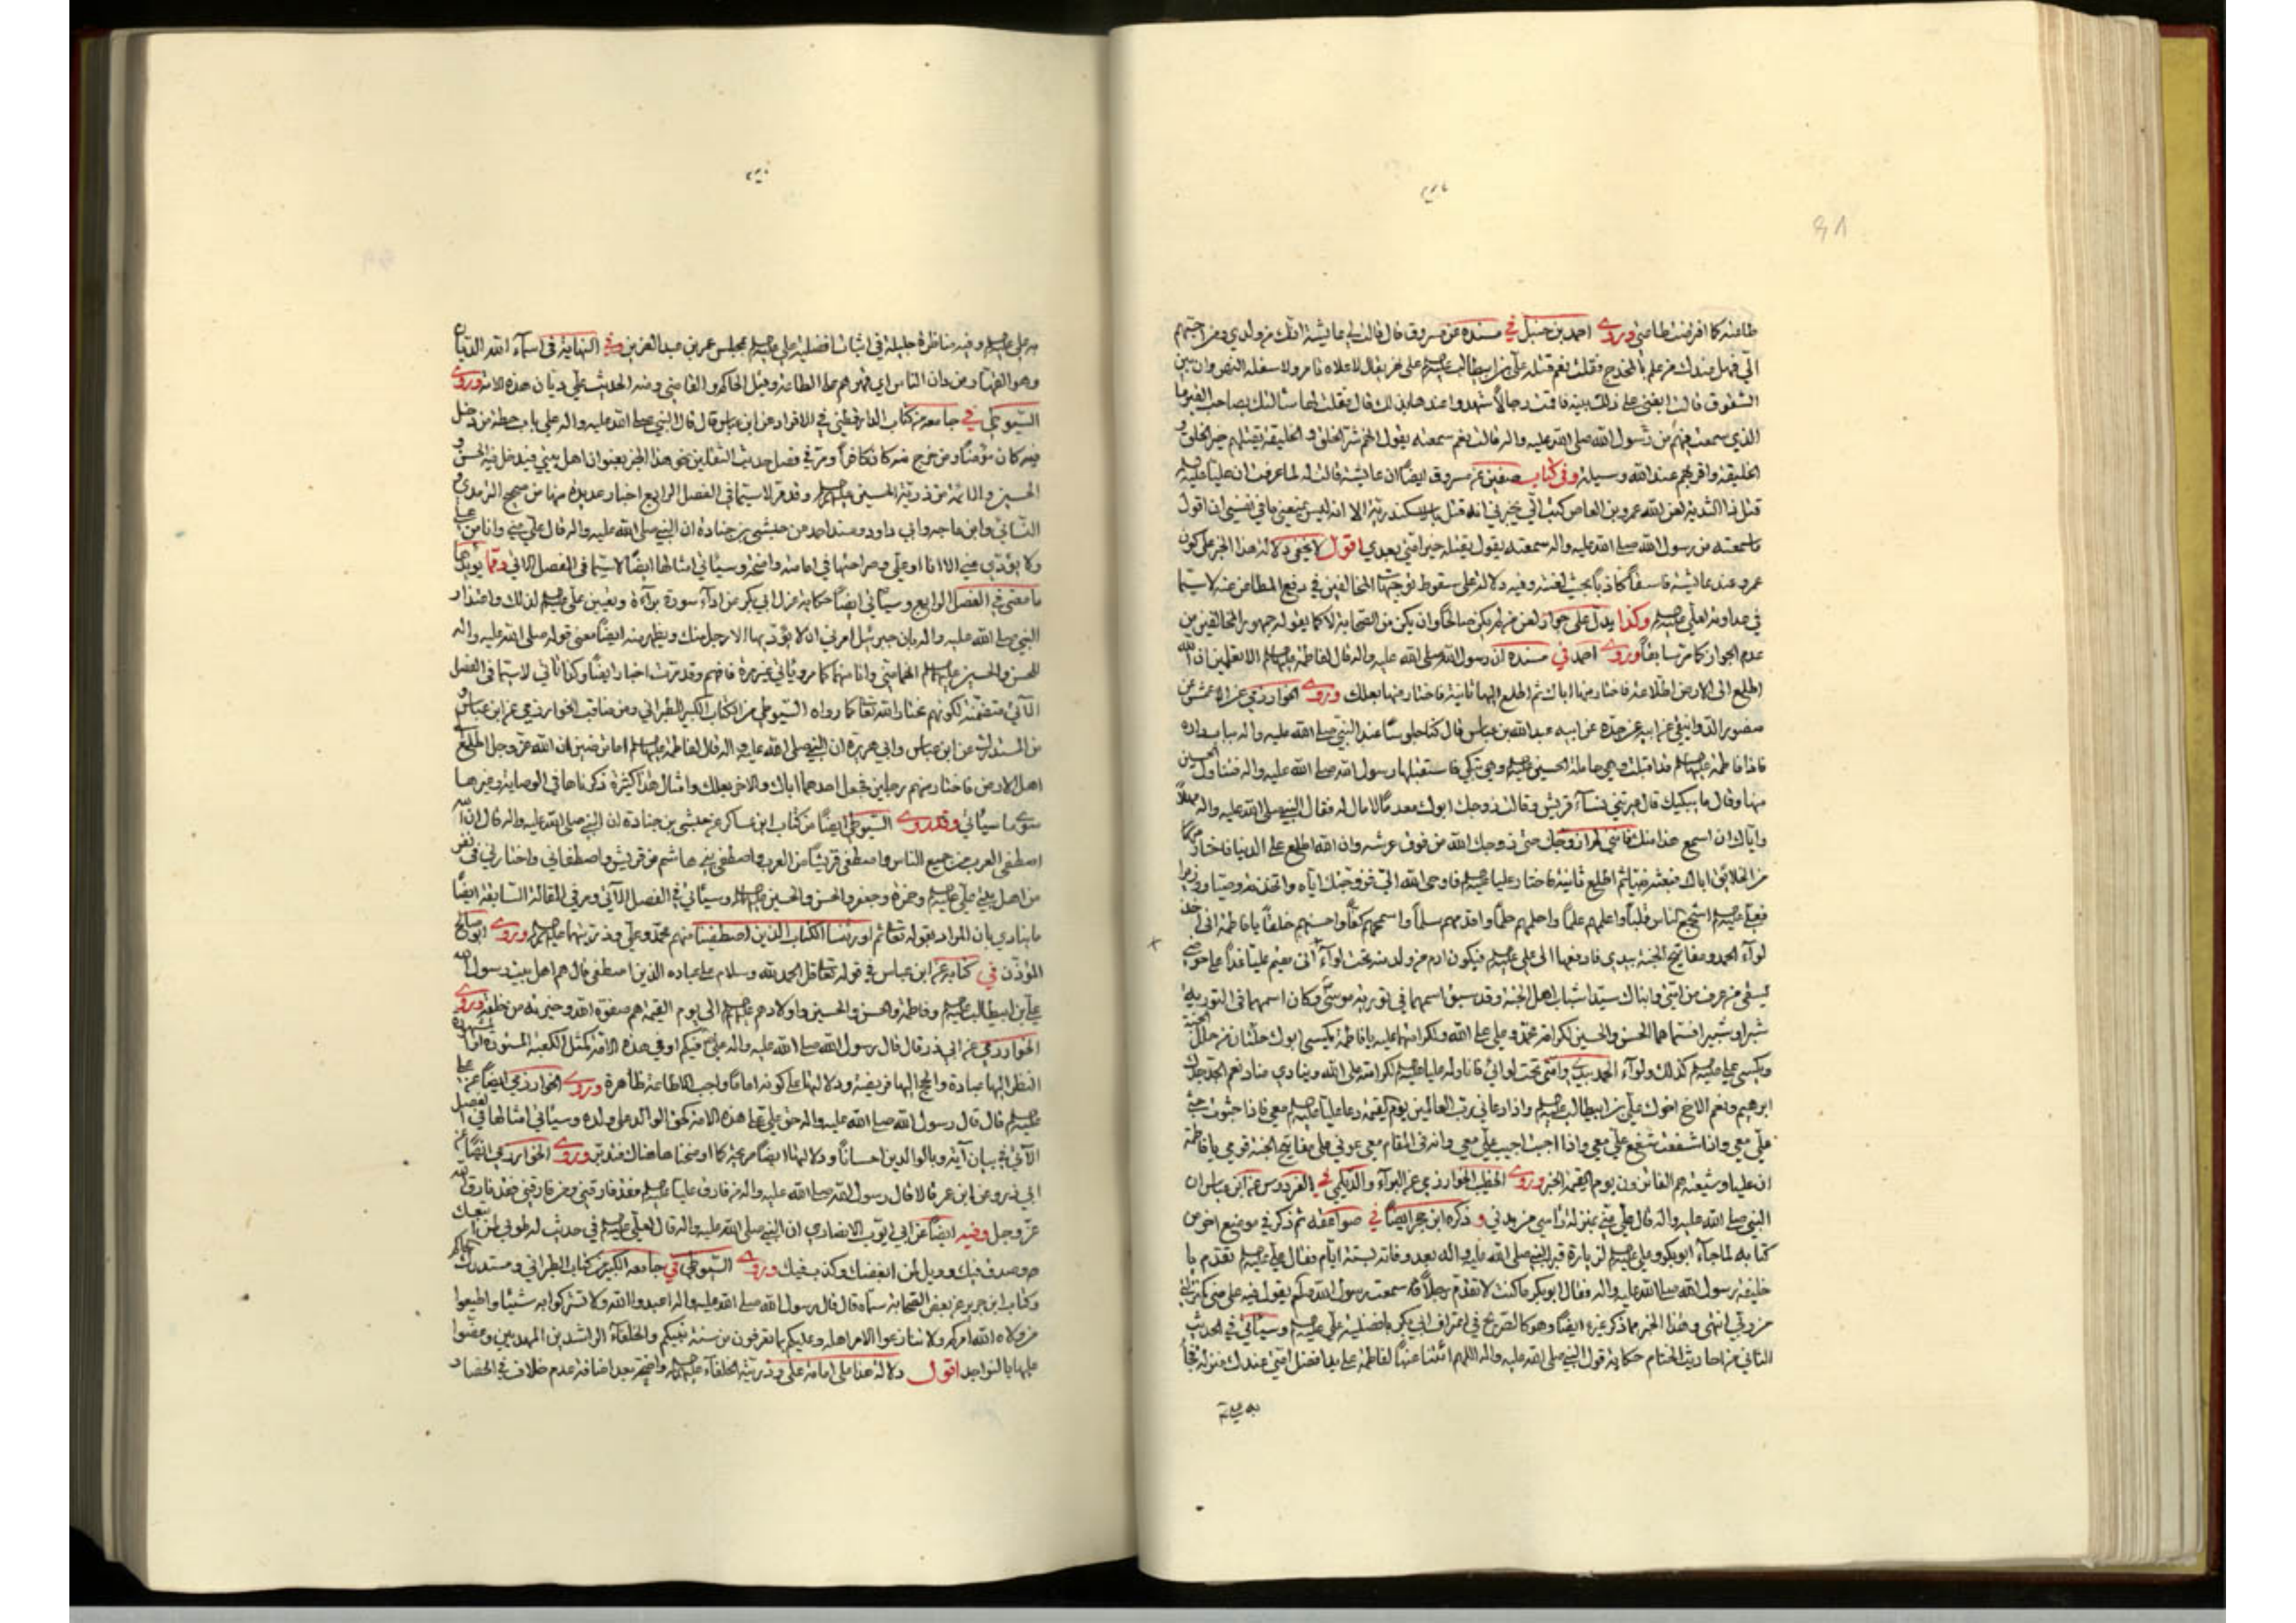 طاعته كما افرضت طاعتي وروى احمد بن حنبل في مسنده عن مسروق قال قالت لي عايشة انك من ولدي ومن احبهم
الي فهل عندك من علم بالمخدج فقلت نعم قتله علي بن ابيطالب على نهر يقال لاعلاه تامرو ولاسفله النهروان بين
قالت ابغني على ذلك بينة فاقمت رجالا شهدوا عندها بذلك قال فقلت لها سالتك بصاحب القبر ما
الذي سمعت فيهم من رسول الله صلى الله عليه واله قالت نعم سمعته يقول انهم شر الخلق والخليقة يقتلهم خير الخلق و
الخليقة واقربهم عند الله وسيلة وفي كتاب صفين عن مسروق ايضا ان عايشة قالت له لما عرفت ان عليا عليه
قتل ذا الثدية لعن الله عمرو بن العاص كتب الي يخبرني انه قتله بالاسكندرية الا انه ليس يمنعني ما في نفسي ان اقول
ما سمعته من رسول الله صلى الله عليه واله سمعته يقول يقتله خير امتي بعدي اقول لا يخفى دلالة هذا الخبر على كون
عمرو عند عايشة فاسقا كاذبا بحيث لعنته وفيه دلالة على سقوط توجيهات المخالفين في رفع المطاعن عنه لاسيما
في عداوته لعلي وكذا يدل على جواز لعن من لم يكن صالحا وان يكن من الصحابة لا كما يقوله جمهور المخالفين من
عدم الجواز كما مر سابقا وروى احمد في مسنده ان رسول الله صلى الله عليه واله قال لفاطمة الا تعلمين ان الله
اطلع الى الارض اطلاعة فاختار منها اباك ثم اطلع اليها ثانية فاختار منها بعلك وروى الخوارزمي عن الاعمش عن
منصور الدوانيقي عن ابيه عن جده عن ابيه عبد الله بن عباس قال كنا جلوسا عند النبي صلى الله عليه واله
فاذا فاطمة قد اقبلت وهي حاملة الحسين وهي تبكي فاستقبلها رسول الله صلى الله عليه واله فتناول الحسين
منها وقال ما يبكيك قال عيرتني نساء قريش وقالت زوجك ابوك معدما لا مال له فقال النبي صلى الله عليه واله مهلا
واياك ان اسمع هذا منك فاني لم ازوجك حتى زوجك الله من فوق عرشه وان الله اطلع على الدنيا فاختار
من الخلايق اباك فبعثه نبيا ثم اطلع ثانية فاختار عليا فاوحى الله الي فزوجتك اياه واتخذته وصيا ووزيرا
فعلي اشجع الناس قلبا واعلمهم علما واحلمهم حلما واقدمهم سلما واسمحهم كفا واحسنهم خلقا يا فاطمة اني اخذ
لواء الحمد ومفاتيح الجنة بيدي فادفعها الى علي فيكون ادم ومن ولد من تحت لواءه اني مقيم عليا غدا على حوضي
يسقي من عرف من امتي وابناك سيدا شباب اهل الجنة وقد سبق اسمهما في تورية موسى وكان اسمهما في التورية
شبرا وشبيرا فسماهما الحسن والحسين لكرامة محمد وعلي على الله ولكرامتهما عليه يا فاطمة يكسى ابوك حلتان من حلل الجنة
ويكسى علي كذلك ولواء الحمد بيدي وامتي تحت لوائي فاناوله عليا لكرامته على الله وينادي مناد نعم الجد جدك
ابرهيم ونعم الاخ اخوك علي بن ابيطالب واذا دعاني رب العالمين يوم القيمة دعا عليا معي فاذا جثوت جثى
علي معي واذا شفعت شفع علي معي واذا اجبت اجيب علي معي وانه في المقام معي عوني على مفاتيح الجنة قومي يا فاطمة
ان عليا وشيعته هم الفائزون يوم القيمة الخبر وروى الخطيب الخوارزمي عن البراء والديلمي في الفردوس عن ابن عباس ان
النبي صلى الله عليه واله قال علي مني بمنزلة راسي من بدني وذكره ابن حجر ايضا في صواعقه ثم ذكر في موضع اخر من
كتابه لما جاء ابوبكر وعلي لزيارة قبر النبي صلى الله عليه واله بعد وفاته بستة ايام فقال علي تقدم يا
خليفة رسول الله صلى الله عليه واله فقال ابوبكر ما كنت لاتقدم رجلا سمعت رسول الله يقول فيه علي مني كمنزلتي
من ربي انتهى وهذا الخبر مما ذكره غيره ايضا وهو كالصريح في اعتراف ابي بكر بافضلية علي وسياتي في الحديث
الثاني من احاديث الختام حكاية قول النبي صلى الله عليه واله اللهم ائتنا عنها لفاطمة علي يد افضل امتي عندك منزلة فجاء
به علي
من علي وفيه مناظرة جليلة في اثبات افضلية علي بمجلس عمر بن عبد العزيز وفي النهاية في اسماء الله الديان
وهو القهار من دان الناس اي قهرهم على الطاعة وقيل الحاكم والقاضي ومنه الحديث علي ديان هذه الامة وروى
السيوطي في جامعه من كتاب الدارقطني في الافراد عن ابن عباس قال قال النبي صلى الله عليه واله علي باب حطة من دخل
فيه كان مؤمنا ومن خرج منه كان كافرا ومر في فصل حديث الثقلين نحو هذا الخبر بعنوان اهل بيتي فيدخل فيه الحسن و
الحسين والائمة من ذرية الحسين وقد مر لاسيما في الفصل الرابع اخبار عديدة منها من صحيح الترمذي و
النسائي وابن ماجه وابي داود ومسند احمد من حبشي بن جنادة ان النبي صلى الله عليه واله قال علي مني وانا من علي
ولا يؤدي عني الا انا او علي وصراحتها في امامته واضحة وسياتي امثالها ايضا لاسيما في الفصل الاتي ومما يؤيدها
ما مضى في الفصل الرابع وسياتي ايضا حكاية عزل ابي بكر عن اداء سورة براءة وتعيين علي لذلك واعتذار
النبي صلى الله عليه واله بان جبرئيل امرني ان لا يؤد بها الا رجل منك ويظهر منه ايضا معنى قوله صلى الله عليه واله
للحسن والحسين انهما مني وانا منهما كما مر وياتي غير مرة فافهم وقد مرت اخبار ايضا وكذا تاتي لاسيما في الفصل
الاتي متضمنة لكونهم مختار الله تعالى كما رواه السيوطي من الكتاب الكبير للطبراني ومن مناقب الخوارزمي عن ابن عباس و
من المستدرك عن ابن عباس وابي هريرة ان النبي صلى الله عليه واله قال لفاطمة اما ترضين ان الله عز وجل اطلع على
اهل الارض فاختار منهم رجلين فجعل احدهما اباك والاخر بعلك وامثال هذا كثيرة ذكرناها في الوصاية وغيرها
سوى ما سياتي وقد روى السيوطي ايضا من كتاب ابن عساكر عن حبشي بن جنادة ان النبي صلى الله عليه واله قال ان الله
اصطفى العرب من جميع الناس واصطفى قريشا من العرب واصطفى بني هاشم من قريش واصطفاني واختارني في نفر
من اهل بيتي علي وحمزة وجعفر والحسن والحسين وسياتي في الفصل الاتي ومر في المقالة السابقة ايضا
ما ينادي بان المراد بقوله تعالى ثم اورثنا الكتاب الذين اصطفينا منهم محمد وعلي وذريتهما وروى ابو صالح
المؤذن في كتابه عن ابن عباس في قوله تعالى قل الحمد لله وسلام على عباده الذين اصطفى قال هم اهل بيت رسول الله
علي بن ابيطالب وفاطمة والحسن والحسين واولادهم الى يوم القيمة هم صفوة الله وخيرته من خلقه وروى
الخوارزمي عن ابي ذر قال قال رسول الله صلى الله عليه واله علي فيكم او في هذه الامة كمثل الكعبة المستورة او المشهورة
النظر اليها عبادة والحج اليها فريضة ودلالتها على كونه اماما واجب الاطاعة ظاهرة وروى الخوارزمي ايضا عن علي
قال قال رسول الله صلى الله عليه واله حق علي على هذه الامة كحق الوالد على ولده وسياتي امثالها في الفصل
الاتي في بيان آية وبالوالدين احسانا ودلالتها ايضا صريحة كما اوضحنا هناك فتدبر وروى الخوارزمي ايضا عن
ابي ذر وعن ابن عمر قالا قال رسول الله صلى الله عليه واله من فارق عليا فقد فارقني ومن فارقني فقد فارق الله
عز وجل وفيه ايضا عن ابي ايوب الانصاري ان النبي صلى الله عليه واله قال لعلي في حديث له طوبى لمن تبعك
وصدق فيك وويل لمن ابغضك وكذب فيك وروى السيوطي في جامعه الكبير من كتاب الطبراني ومستدرك الحاكم
وكتاب ابن جرير عن بعض الصحابة سماه قال قال رسول الله صلى الله عليه واله اعبدوا الله ولا تشركوا به شيئا واطيعوا
من ولاه الله امركم ولا تنازعوا الامر اهله وعليكم بما تعرفون من سنة نبيكم والخلفاء الراشدين المهديين وعضوا
عليها بالنواجد اقول دلالة هذا على امامة علي وذريته الخلفاء واضحة بعد اضافة عدم خلاف في انحصار